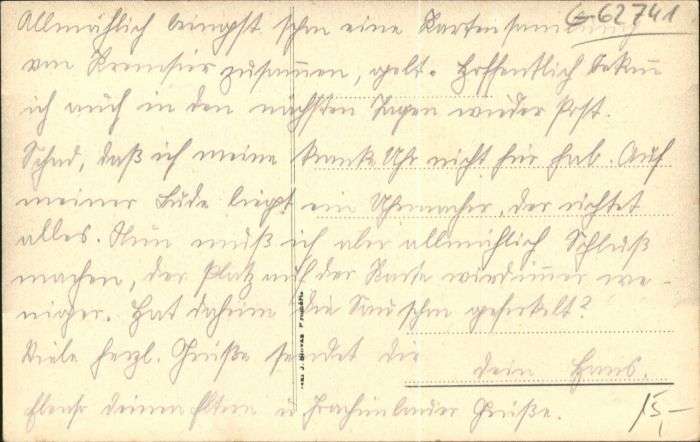 Allmählich bringst schon eine Kartensammlung
G 62741
von Kremsier zusammen, gelt. Hoffentlich bekomm
ich auch in den nächsten Tagen wieder Post.
Schad, daß ich meine kranke Uhr nicht hier hab. Auf
meiner Bude liegt ein Uhrmacher, der richtet
alles. Nun muß ich aber allmählich Schluß
machen, der Platz auf der Karte wird immer we-
niger. Hat daheim die Sau schon geferkelt?
Viele herzl. Grüße sendet dir
dein Hans.
Ebenso deinen Eltern u. Grüße.
15,-